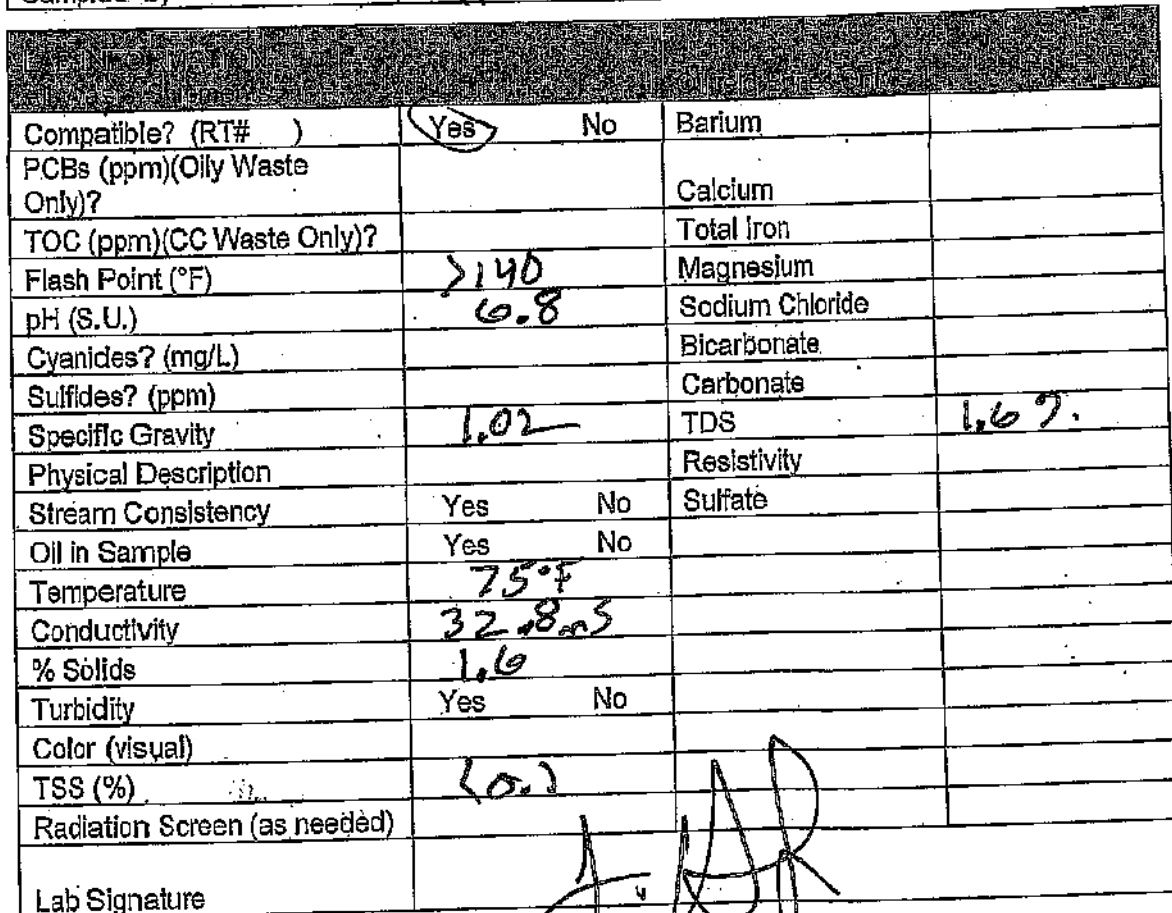 LAB INFORMATION
Compatible? (RT# ) Yes No Barium
PCBs (ppm)(Oily Waste
Only)? Calcium
TOC (ppm)(CC Waste Only)? Total Iron
Flash Point (°F) >140 Magnesium
pH (S.U.) 6.8 Sodium Chloride
Cyanides? (mg/L) Bicarbonate
Sulfides? (ppm) Carbonate
Specific Gravity 1.02 TDS 1.6
Physical Description Resistivity
Stream Consistency Yes No Sulfate
Oil in Sample Yes No
Temperature 75°F
Conductivity 32.8mS
% Solids 1.6
Turbidity Yes No
Color (visual)
TSS (%)
Radiation Screen (as needed)
Lab Signature